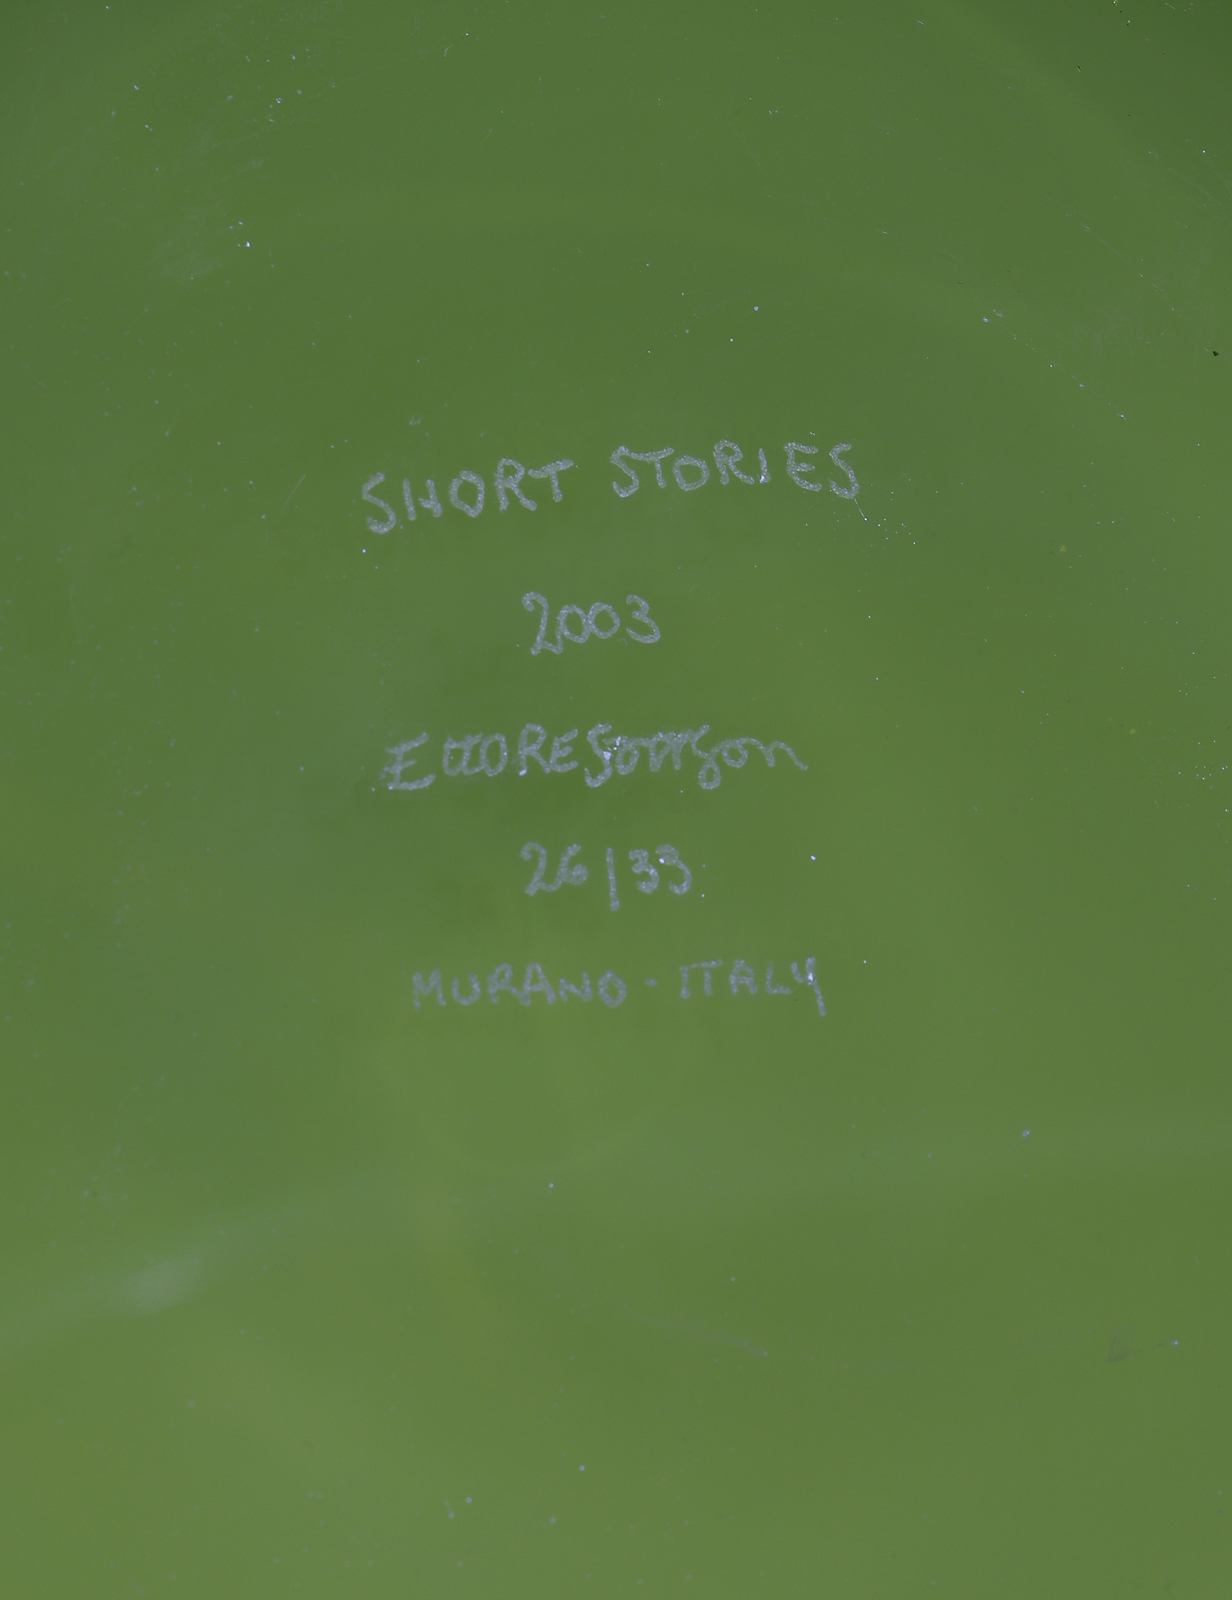 SHORT STORIES
2003
ETTORE Sottsass
26/33
MURANO - ITALY